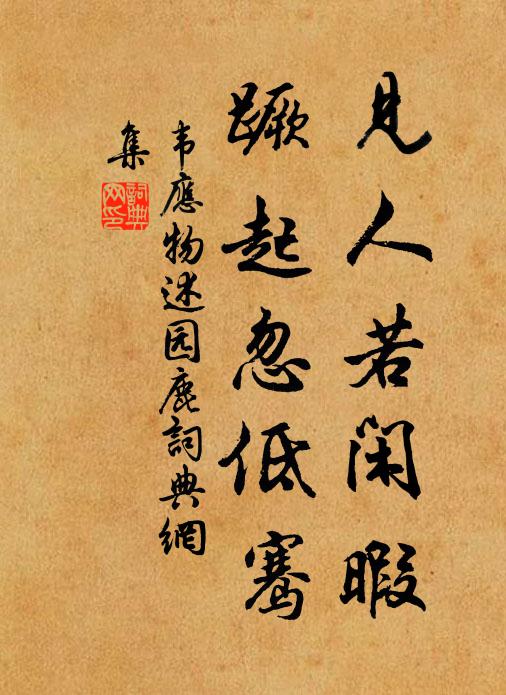 见人若闲暇
蹶起忽低骞
韦應物述园鹿詞典網
集
詞典网印